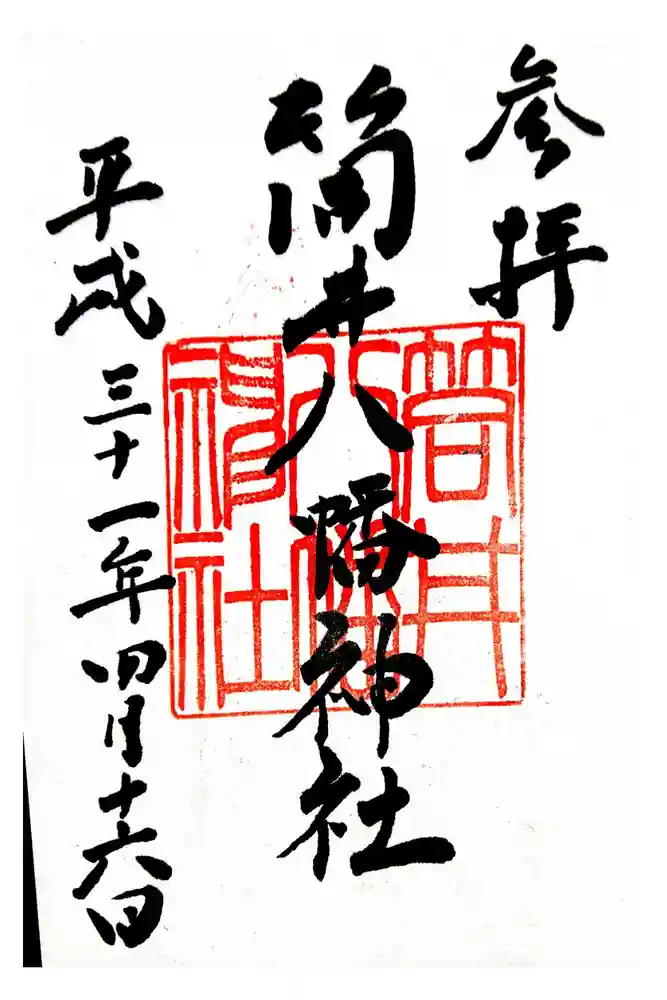 参拝
筒井八幡神社
平成三十一年四月十六日
筒井
八幡
神社